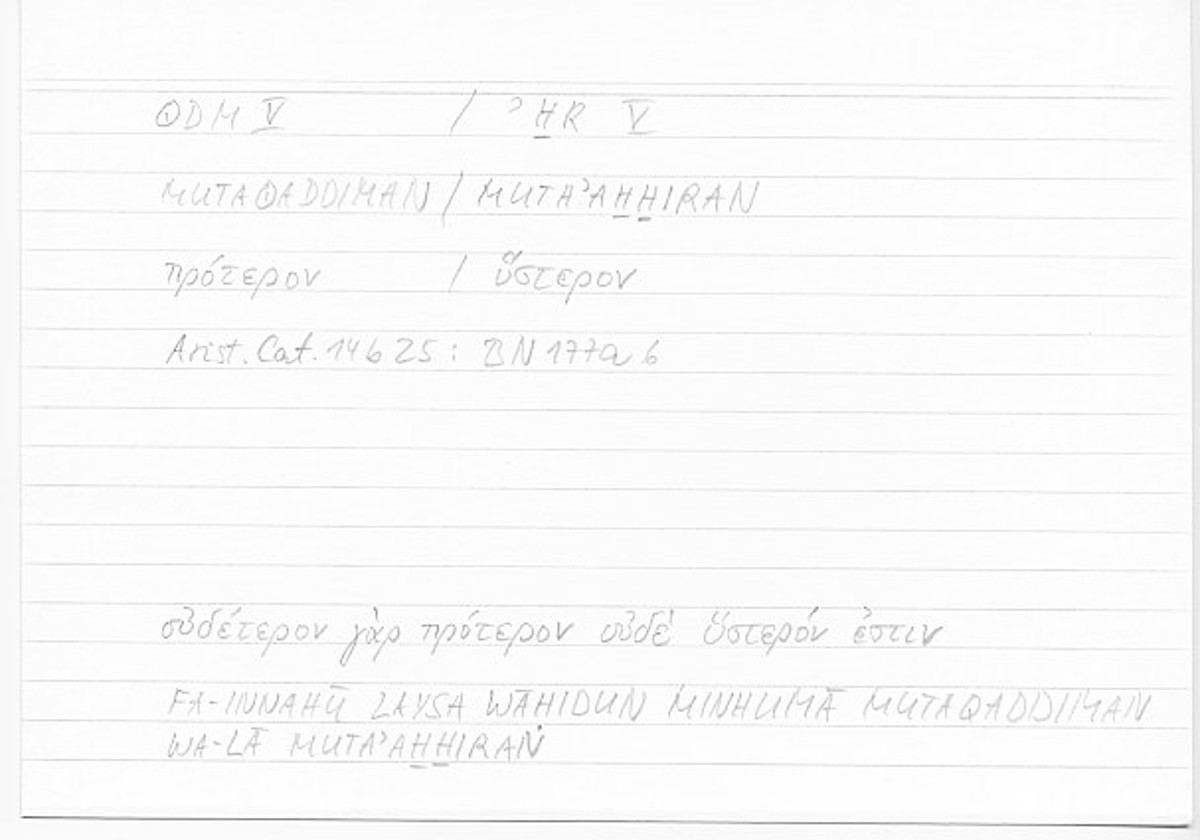 QDM V / ʾH̱R V
MUTAQADDIMAN / MUTAʾAH̱H̱IRAN
πρότερον / ὕστερον
Arist. Cat. 14 b 25 : BN 177a 6
οὐδέτερον γὰρ πρότερον οὐδὲ ὕστερόν ἐστιν
FA-INNAHŪ LAYSA WĀḤIDUN MINHUMĀ MUTAQADDIMAN
WA-LĀ MUTAʾAH̱H̱IRAN